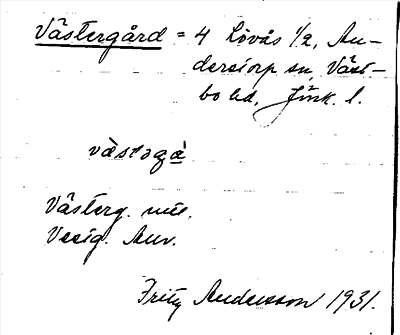 Västergård = 4 Lövås 1/2, An-
derstorp sn, Väst-
bo hd, Jönk. l.
västəgà
Västerg. mtl.
Vesig. Anv.
Fritz Andersson 1931.